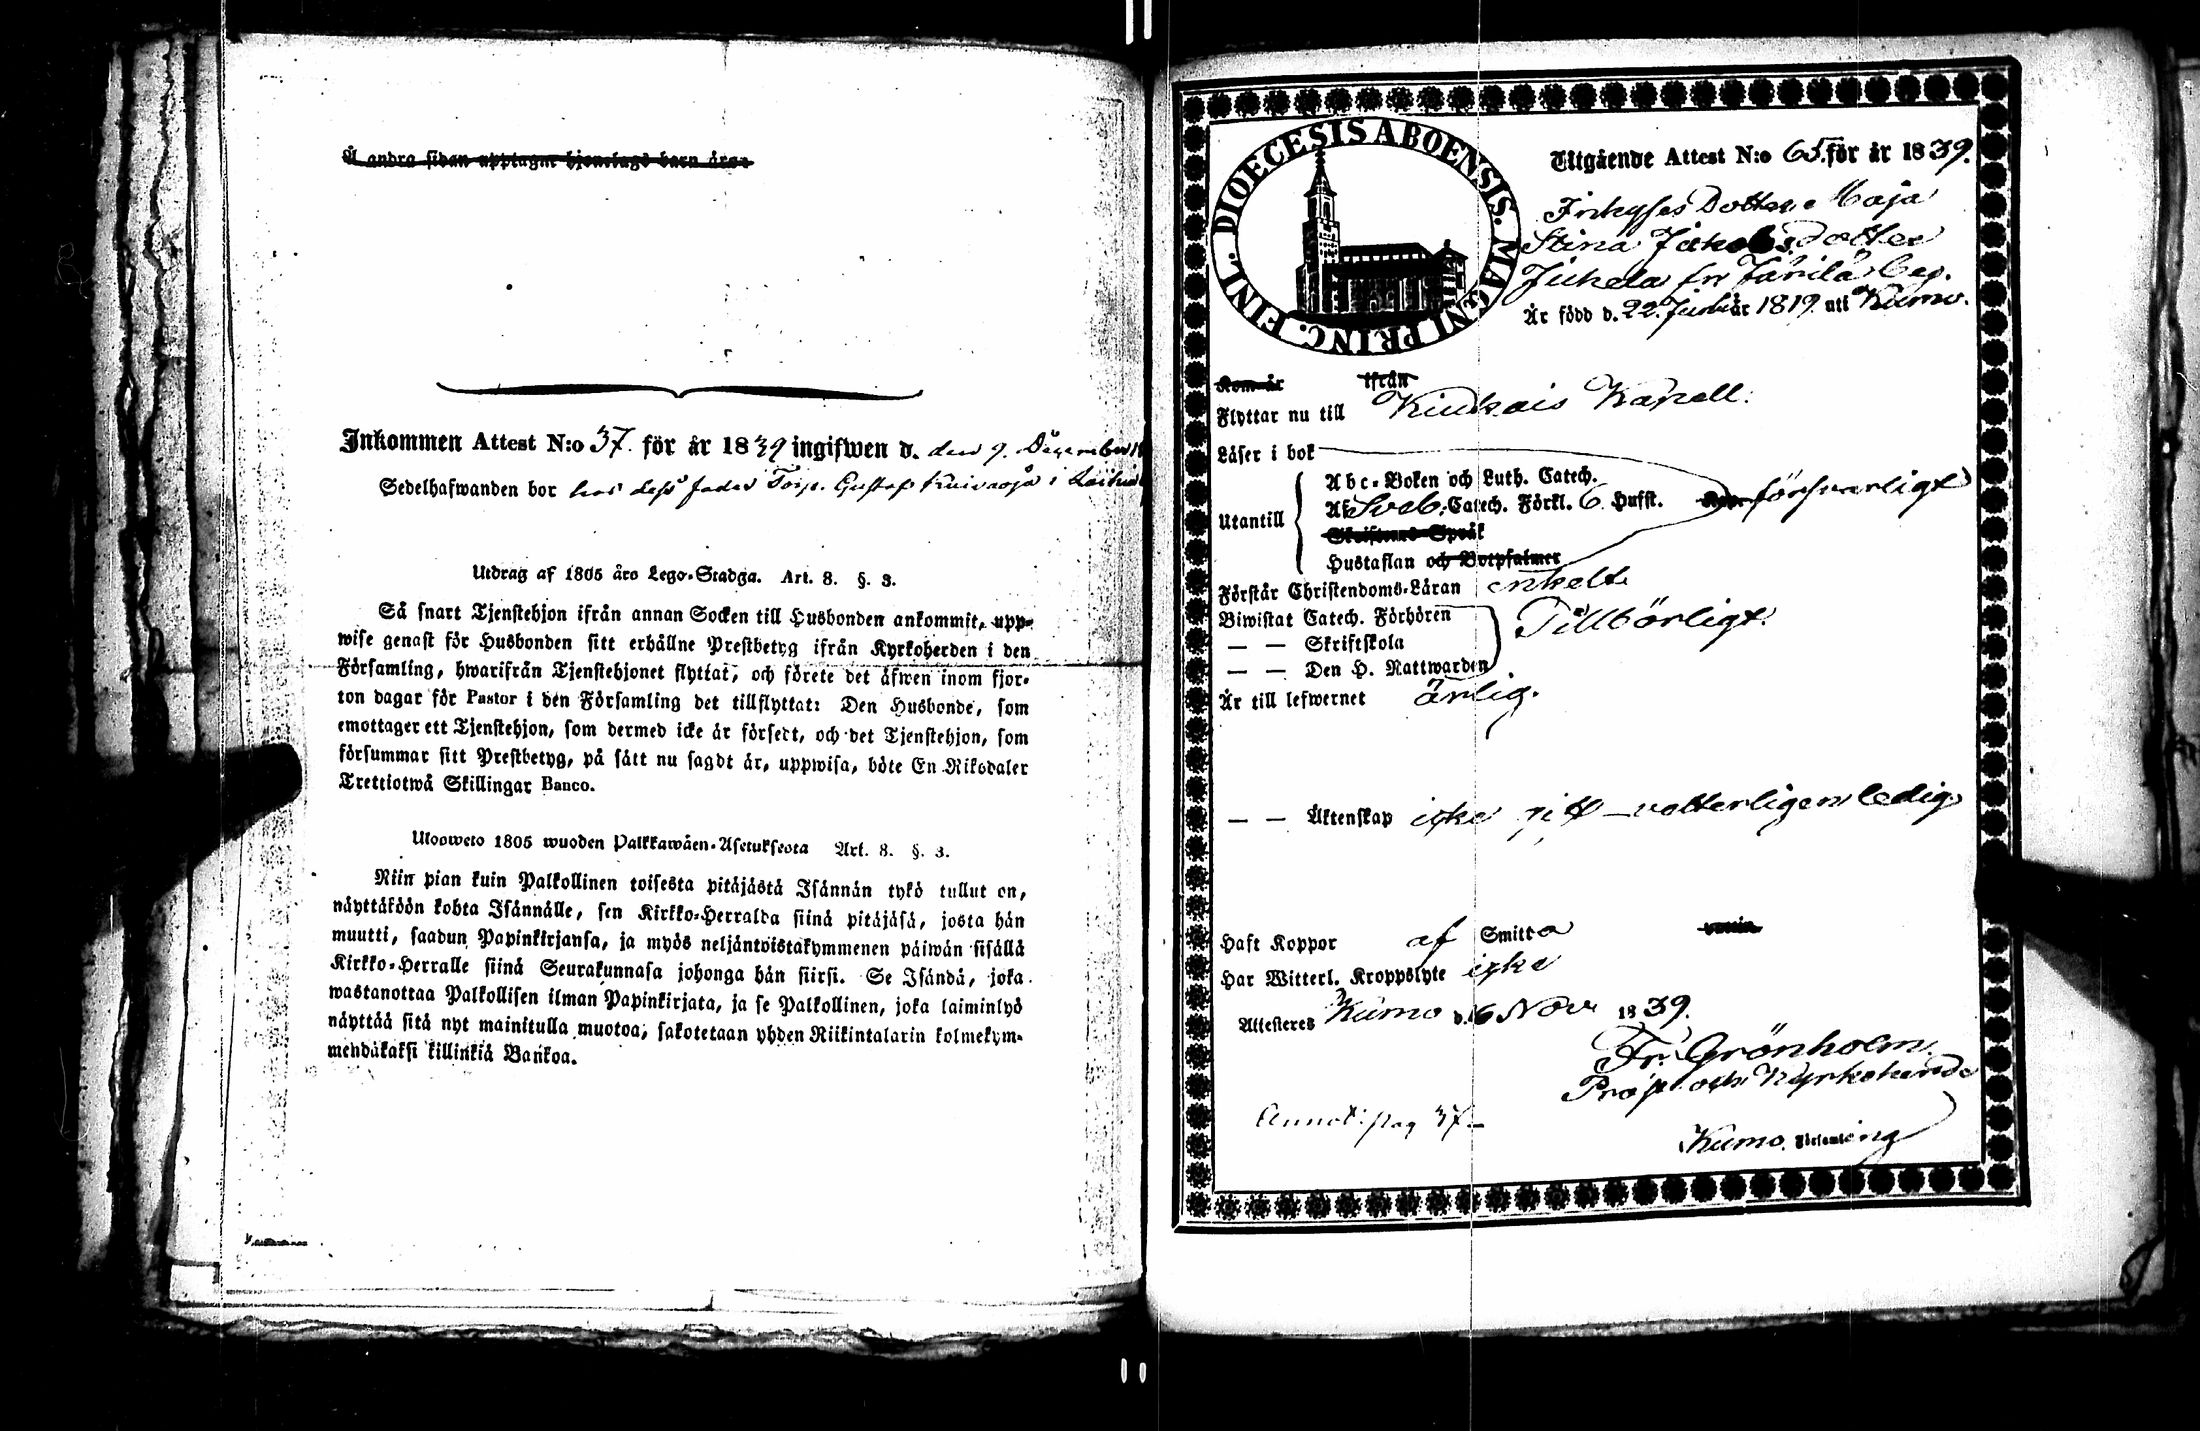 Å andra sidan upptagne hjonelags barn äro:
Inkommen Attest N:o 37. för år 1839 ingifwen d. den 9. December
Sedelhafwanden bor hos dess fader Torp. Gustaf i
Utdrag af 1805 års Lego-Stadga. Art. 8. §. 3.
Så snart Tjenstehjon ifrån annan Socken till Husbonden ankommit, upp-
wise genast för Husbonden sitt erhållne Prestbetyg ifrån Kyrkoherden i den
Församling, hwarifrån Tjenstehjonet flyttat, och förete det äfwen inom fjor-
ton dagar för Pastor i den Församling det tillflyttat: Den Husbonde, som
emottager ett Tjenstehjon, som dermed icke är försedt, och det Tjenstehjon, som
försummar sitt Prestbetyg, på sätt nu sagdt är, uppwisa, böte En Riksdaler
Trettiotwå Skillingar Banco.
Ulosweto 1805 wuoden Palkkawäen-Asetuksesta Art. 8. §. 3.
Niin pian kuin Palkollinen toisesta pitäjästä Isännän tykö tullut on,
näyttäköön kohta Isännälle, sen Kirkko-Herralda siinä pitäjäsä, josta hän
muutti, saadun Papinkirjansa, ja myös neljäntoistakymmenen päiwän sisällä
Kirkko-Herralle siinä Seurakunnasa johonga hän siirsi. Se Isändä, joka
wastanottaa Palkollisen ilman Papinkirjata, ja se Palkollinen, joka laiminlyö
näyttää sitä nyt mainitulla muotoa, sakotetaan yhden Riikintalarin kolmekym-
mendäkaksi killinkiä Bankoa.
FINL. DIOECESIS ABOENSIS. MAGNI PRINC.
Utgående Attest N:o 65. för år 1839.
Inhyses Dottern Maja
Stina Jakobsdotter
Juhela fr Järilä By.
Är född d. 22. Juni år 1819. uti Kumo.
Kom år ifrån
Flyttar nu till Kiukais Kapell.
Läser i bok
Utantill
Abc-Boken och Luth. Catech.
Af Sveb. Catech. Förkl. 6 Hufst. försvarligt
Skriftenes Språk
Hustaflan och Botpsalmer
Förstår Christendoms-Läran enkelt
Biwistat Catech. Förhören Tillbörligt.
— — Skriftskola
— — Den H. Nattwarden
Är till lefwernet ärlig.
— — Äktenskap icke gift – vetterligen ledig
Haft Koppor af Smitta
Har Witterl. Kroppslyte icke
Attesteres Kumo d. 6 Nov 1839.
Fr. Grönholm.
Prost och Kyrkoherde
Annot: pag 37
Kumo Församling